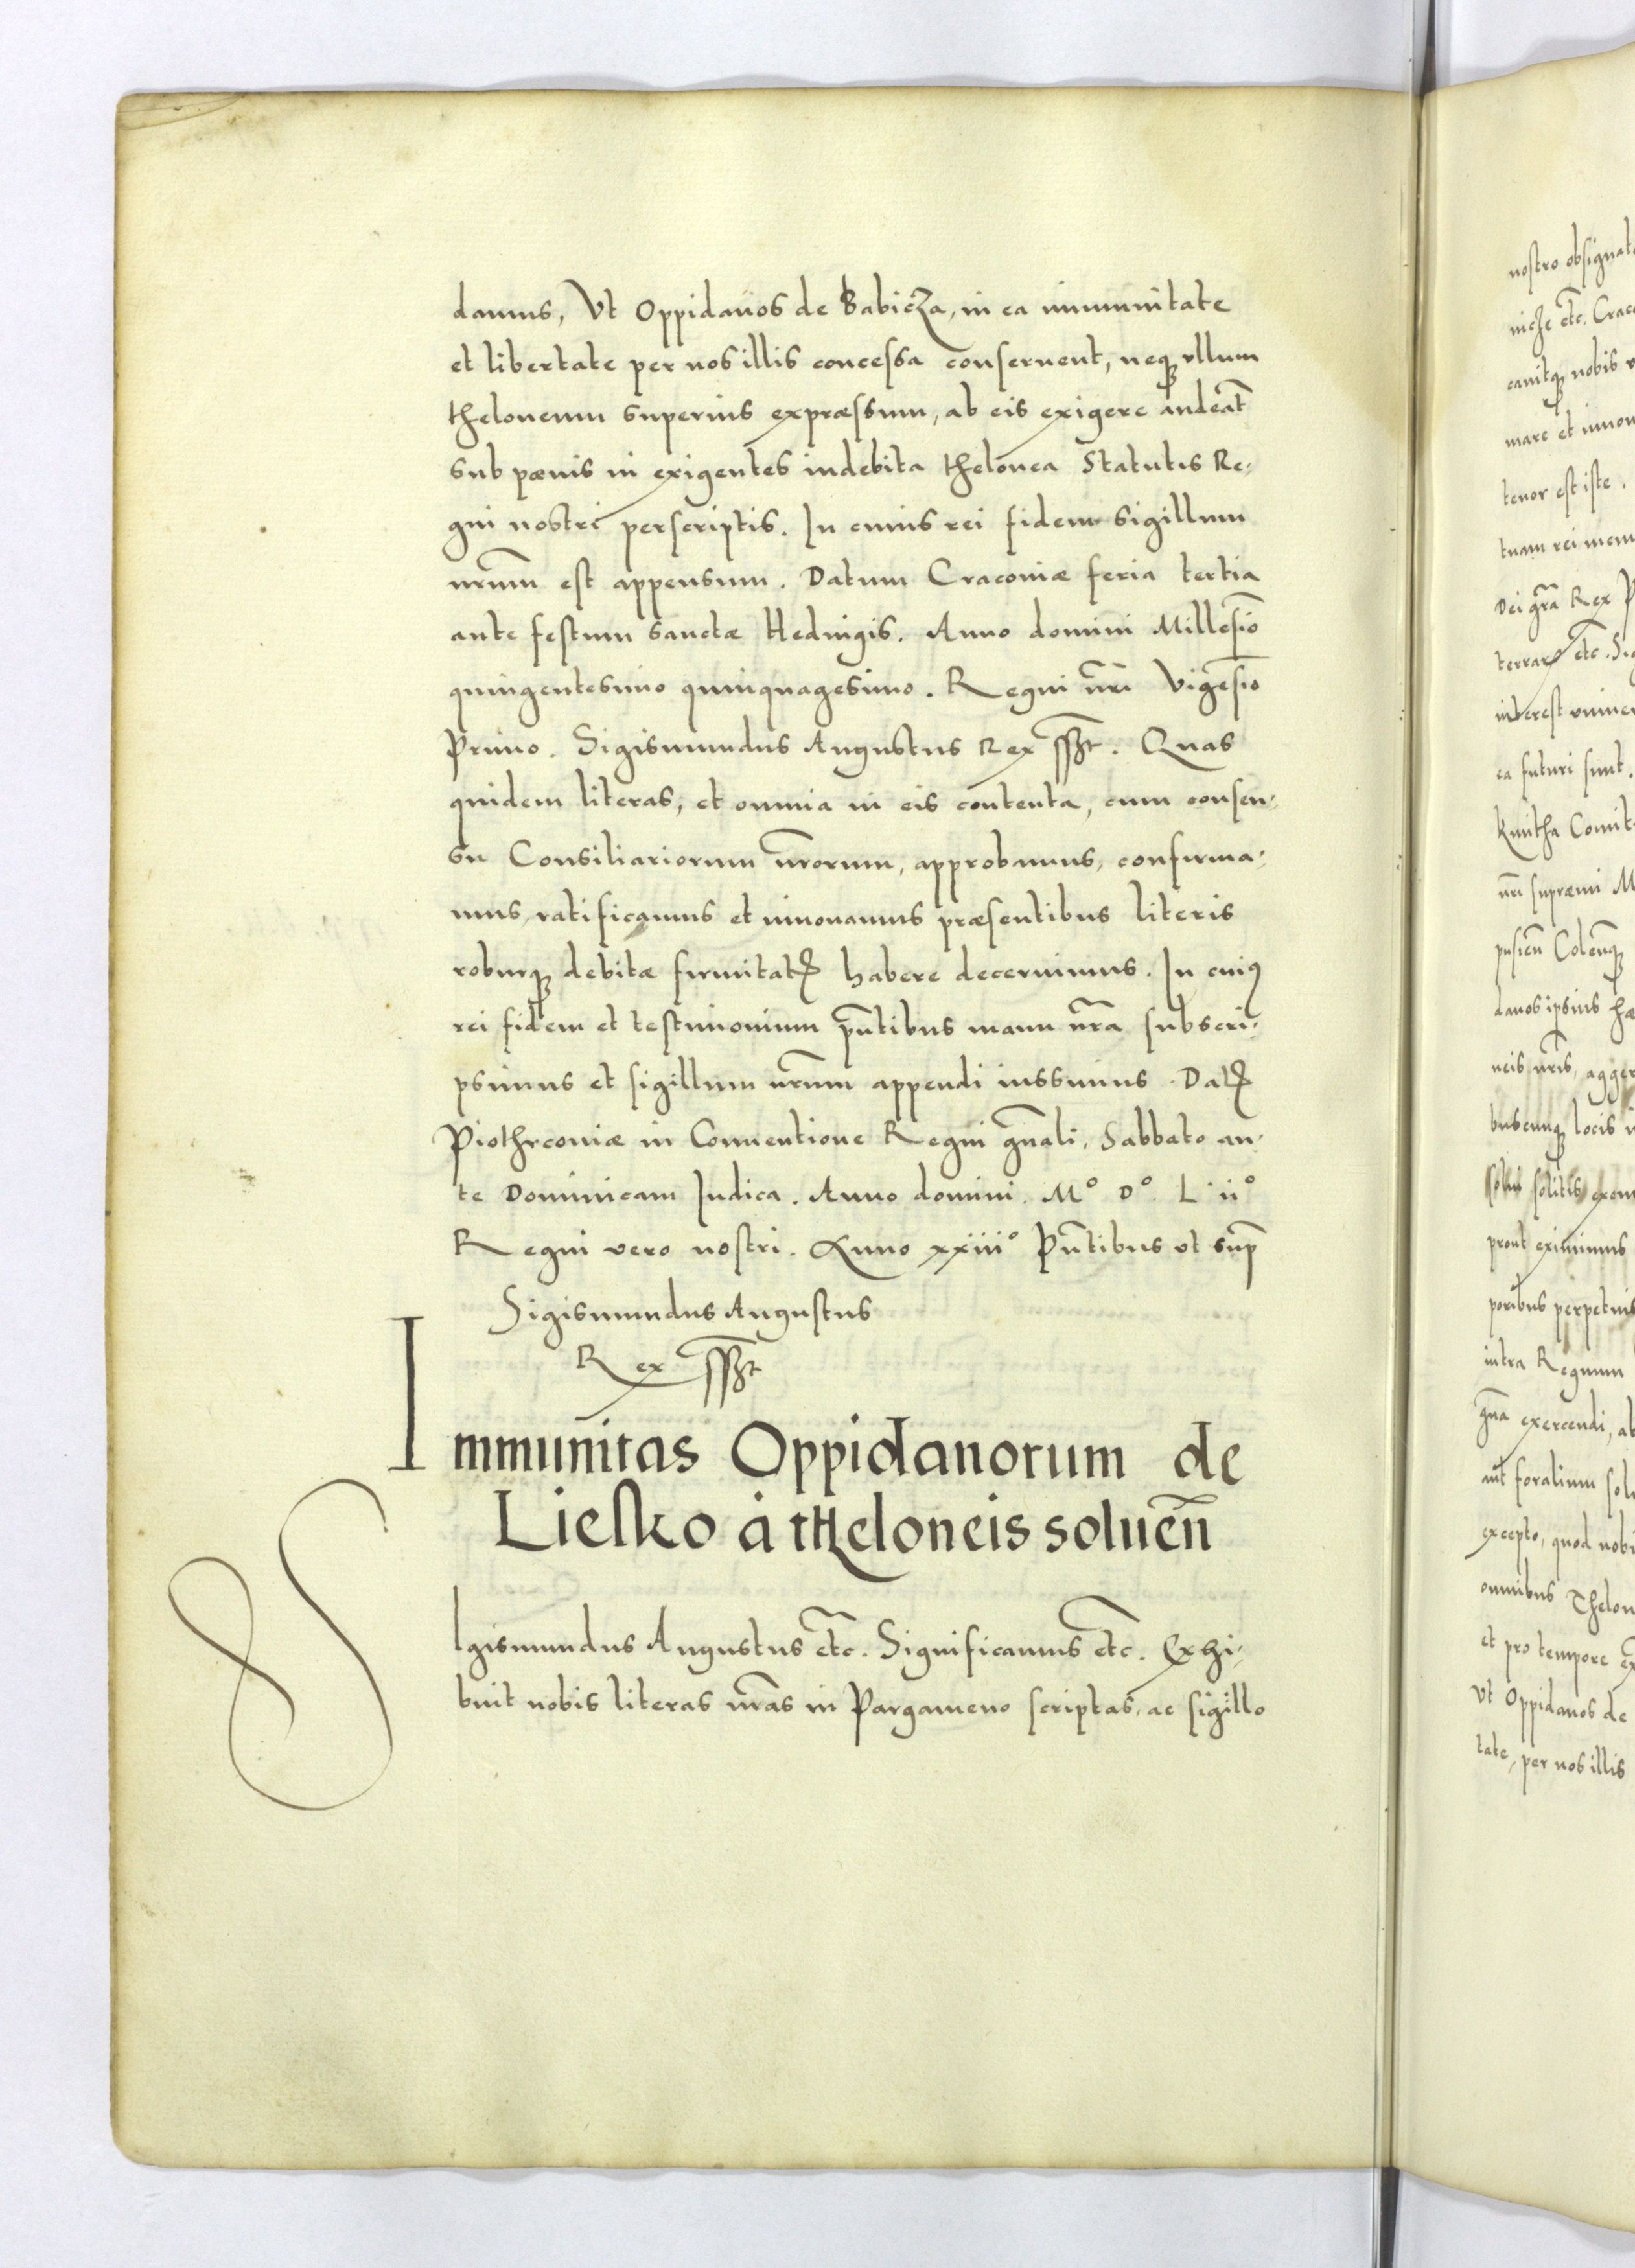 damus, Vt Oppidanos de Babicza, in ea immunitate
et libertate per nos illis concessa conseruent, neq3 vllum
theloneum superius expræssum, ab eis exigere audeãt
sub pænis in exigentes indebita thelonea Statutis Re-
gni nostri perscriptis. In cuius rei fidem sigillum
nr̃um est appensum. Datum Cracouiæ feria tertia
ante festum sanctæ Heduigis. Anno domini Millesĩo
quingentesimo quinquagesimo. Regni nr̃i Vigesĩo
Primo. Sigismundus Augustus Rex sszt. Quas
quidem literas, et omnia in eis contenta, cum consen-
su Consiliariorum nr̃orum, approbamus, confirma-
mus, ratificamus et innouamus præsentibus literis
roburq3 debitæ firmitatꝭ habere decernimus. In cuiꝰ
rei fidem et testimonium pñtibus manu nr̃a subscri-
psimus et sigillum nr̃um appendi iussimus. Datꝭ
Piothrcouiæ in Conuentione Regni gñali, Sabbato an-
te Dominicam Iudica. Anno domini. M° D° L ii°
Regni vero nostri. Anno xxiii° Pñtibus vt sup̃
Sigismundus Augustus
Rex sszt
Immunitas Oppidanorum de
Liesko à theloneis soluẽn
SIgismundus Augustus etc̃. Significamus etc̃. Exhi-
buit nobis literas nr̃as in Pargameno scriptas, ac sigillo
nostro obsignat
etc̃. Crac
nobis
mare et innou
tenor est iste.
tuam rei mem
Dei gr̃a Rex P
etc̃. Sig
interest vniuer
ea futuri sunt.
Kmitha Comit
nr̃i supræmi M
danos ipsius hæ
neis nr̃is, agger
buscunq3 locis
solitis exem
prout eximimus
perpetuis
intra Regnum
gña exercendi, ab
aut foralium sol
excepto, quod nobi
omnibus Thelon
et pro tempore
Vt Oppidanos de
tate, per nos illis